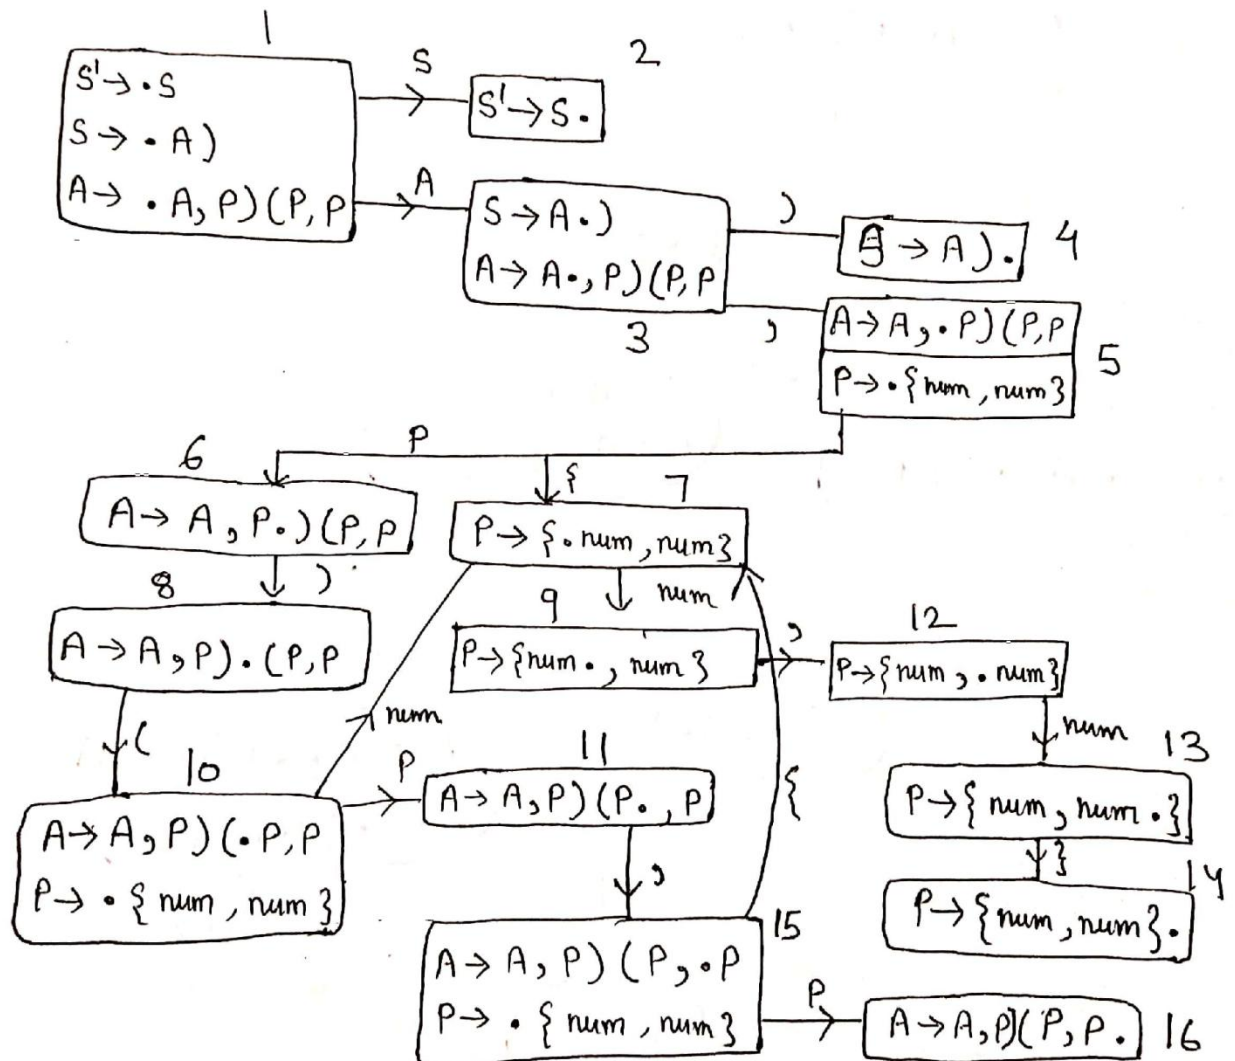 1
S'→ .S
S → . A )
A → . A , P ) ( P , P
S
2
S' → S .
A
S → A . )
A → A . , P ) ( P , P
3
)
S → A ) .
4
,
A → A , . P ) ( P , P
P → . { num , num }
5
P
6
A → A , P . ) ( P , P
{
7
P → { . num , num }
)
8
A → A , P ) . ( P , P
num
9
P → { num . , num }
,
12
P → { num , . num }
(
num
num
10
A → A , P ) ( . P , P
P → . { num , num }
P
11
A → A , P ) ( P . , P
{
13
P → { num , num . }
}
14
P → { num , num } .
,
15
A → A , P ) ( P , . P
P → . { num , num }
P
A → A , P ) ( P , P .
16